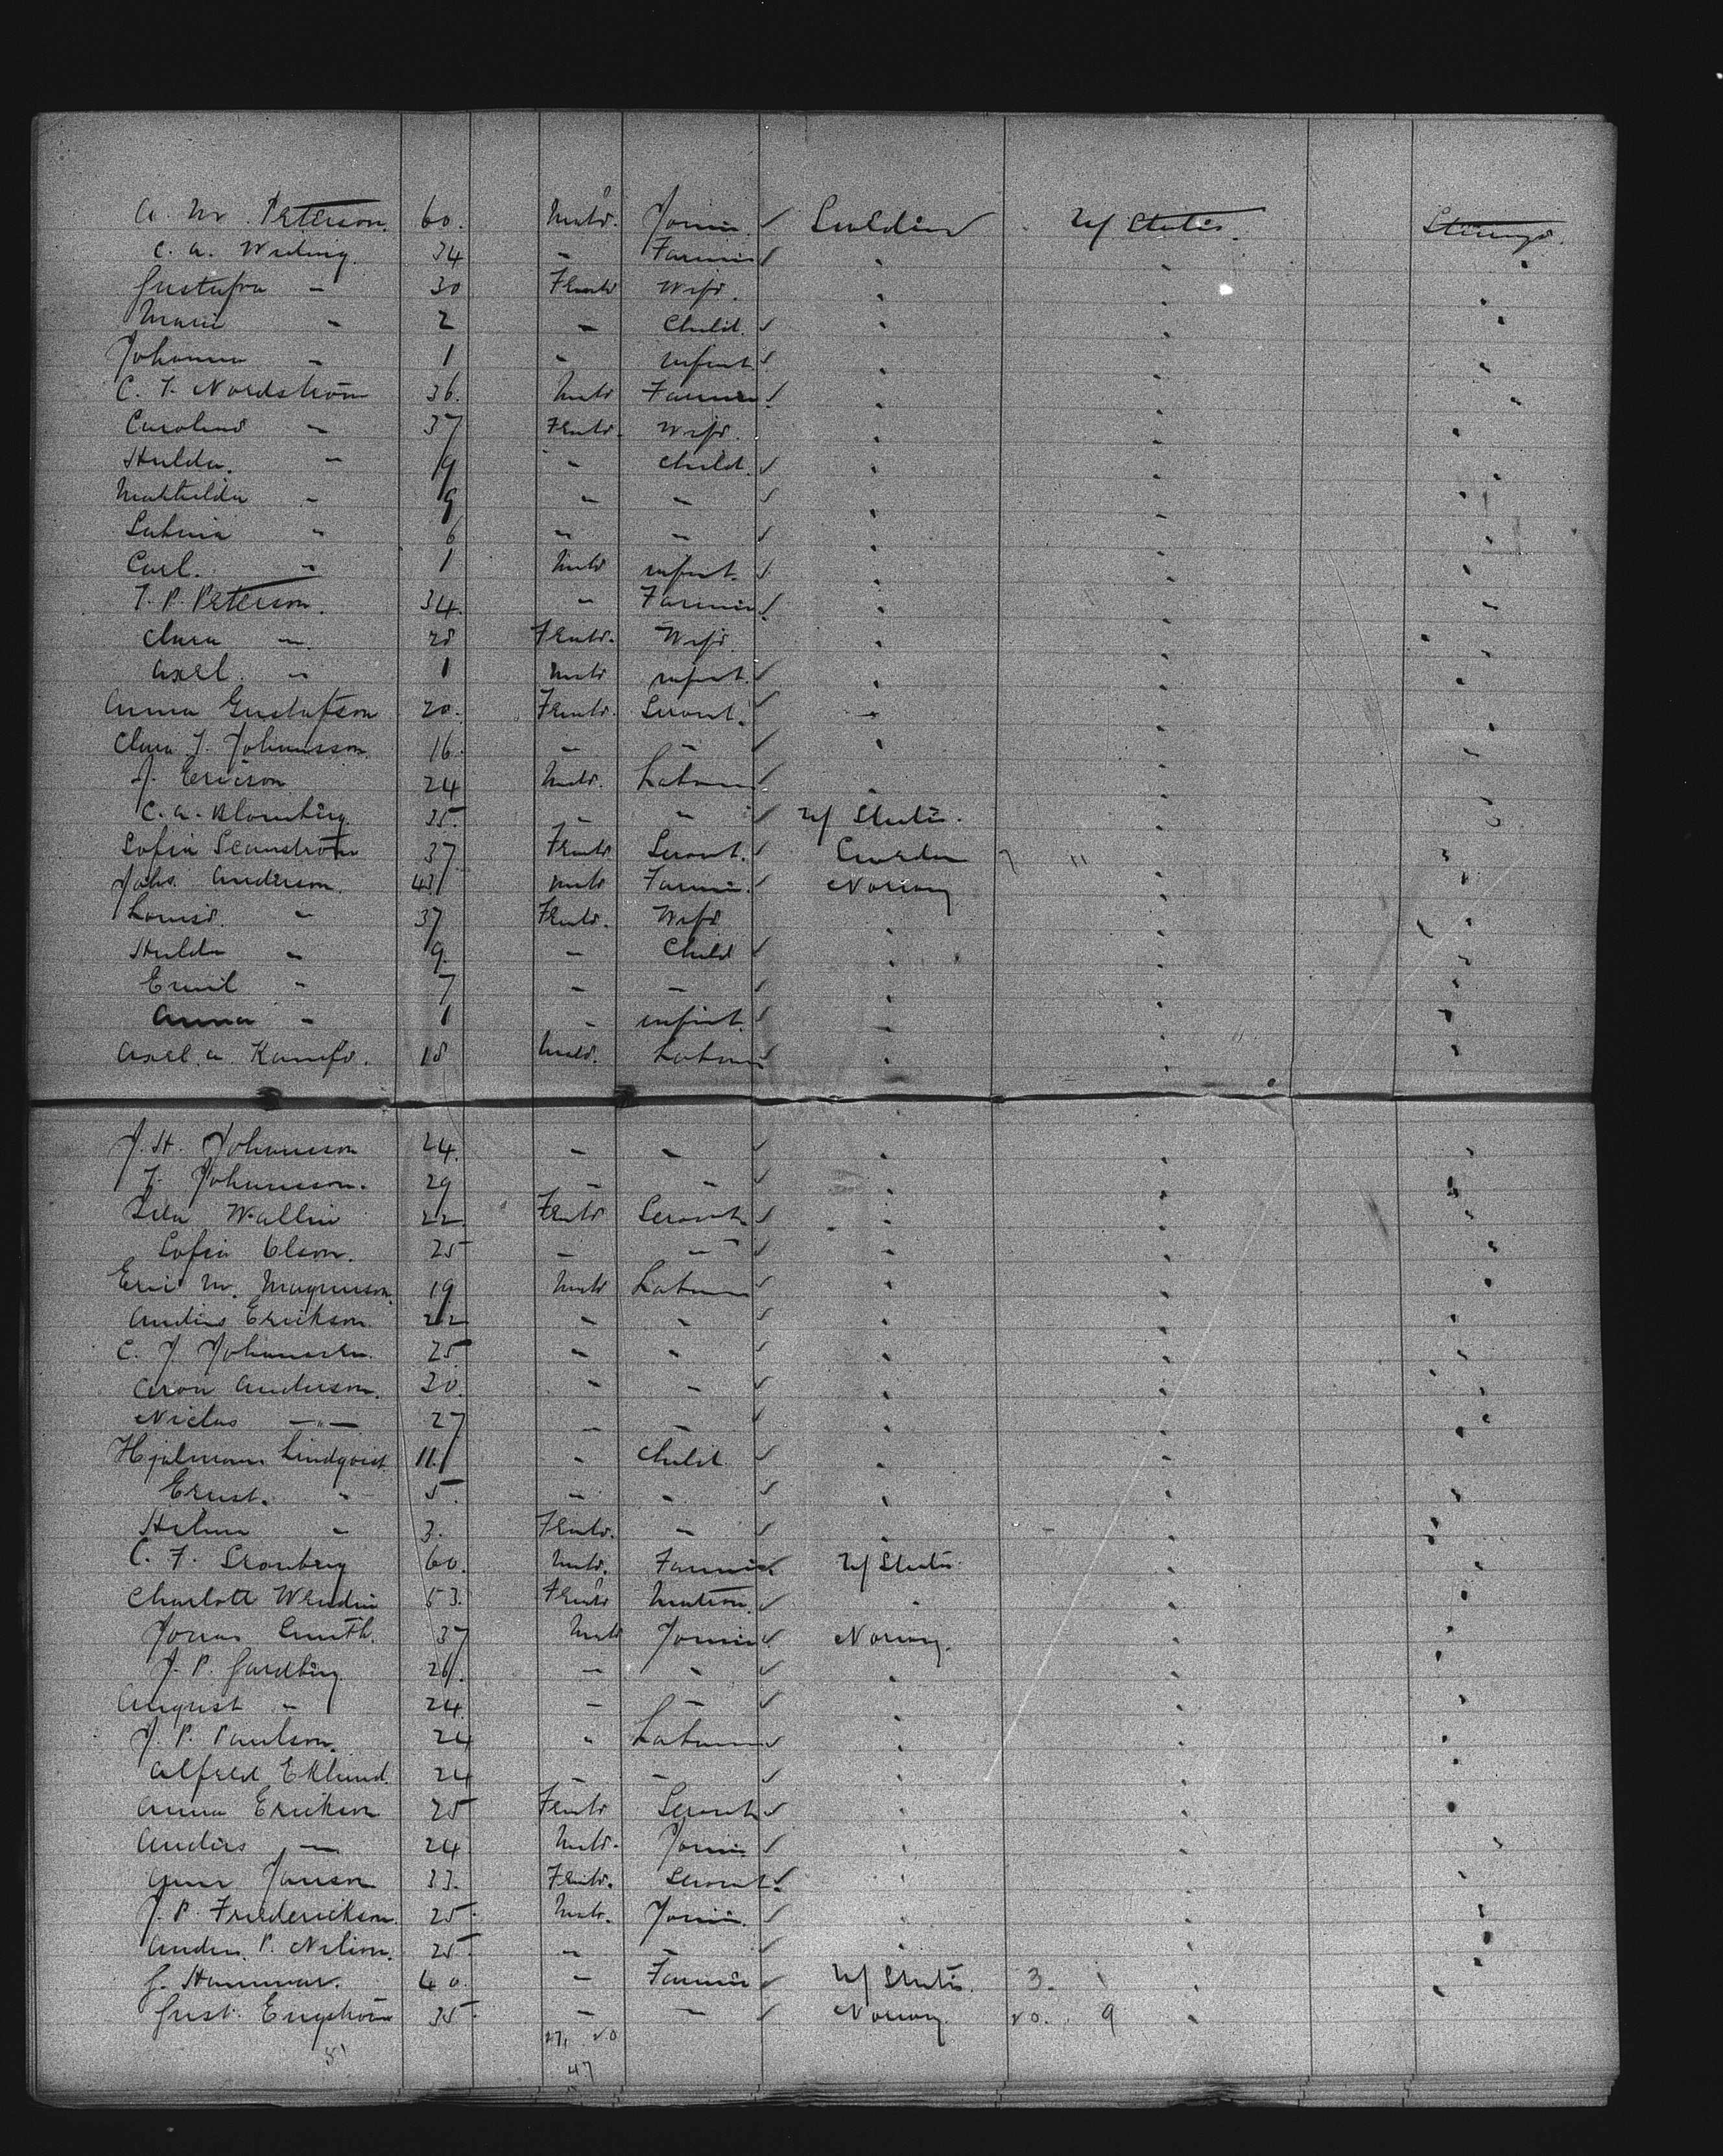 A. M. Peterson. 60. Male. Sweden U States. Steerage.
C. A. Weding. 34 " Farmer
Gustafva " 30 Female Wife.
Marie " 2 " Child.
Johanna " 1 " infant
C. F. Nordström 36. Male Farmer
Carolina " 37 Female. Wife.
Hulda. " 9 " Child.
Mathilda " 9 " "
Sabina " 6 " "
Carl. " 1 Male infant.
F. P. Peterson. 34. " Farmer
Clara " 28 Female. Wife.
Axel. " 1 Male infant.
Anna Gustafson 20. Female. Servant.
Clara J. Johansson. 16. " "
J. Ericson 24 Male. Labourer
C. A. Blomberg. 35. " " U States.
Sofia 37 Female Servant. Sweden "
Johs. Anderson. 43 Male Farmer. Norway
Louise. " 37 Female. Wife
Hulda " 9. " Child
Emil " 7 " "
Anna " 1 " infant.
Axel. A. 18 Male. Labourer
J. H. Johansson 24. " "
F. Johansson. 29 " "
Wallin 22. Female Servant
Sofia Olson. 25 " "
Eric M. Magnuson. 19 Male Labourer
Anders Erickson. 22 " "
C. J. Johansson. 25 " "
Aron Anderson. 20. " "
Niclas — " — 27 " "
Hjalmar Lindqvist 11. " Child
Ernst. " 5. " "
Helma " 3. Female. "
C. F. 60. Male. Farmer U States.
Charlott Wendin 53. Female Matron.
Jonas Smith. 37 Male Norway.
J. P. Gardberg 26. " "
August " 24. " "
J. P. Paulson. 24 " Labourer
Alfred Eklund. 24 " "
Anna Erickson 25 Female Servant
Anders " 24 Male.
Janson 33. Female. Servant.
J. P. Friederickson. 25. Male.
Anders. P. Nelson. 25. " "
G. Hammar. 40. " Farmer U States. 3.
Gust. Engström 35. " " Norway. 20. 9
27, 20
47